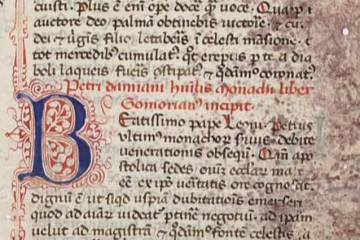 cuisti. plus ē eni ope doce q̄ʒ uoce. Quaꝓpt
auctore deo palmā obtinebis uictorie. ⁊ cū
dei ⁊ ūgīs filio letabeis ī celesti māsione. ꝓ
tot mercedibꝰ cumulatꝰ. qͦt ereptis p te a dia
boli laqueis fueis ꝯstipatꝰ. ⁊ qͦdāmo coronatꝰ.
Petri damiani hūilis monachi liber
Gomorianꝰ incipit.
Beatissimo pape Leoni. Petrus
ultimꝰ monachoꝝ seruiꝰ debite
uenerationis obsequiū. Qm̄ apo
stolica sedes oium eccliaꝝ mat
eē ex ipo ueritatis ore cognoscit.
dignū ē ut siqd uspiā dubitatiois emerserit
quod ad aīaꝝ uideatꝰ ptine negotiū. ad ipam
uelut ad magistrā ⁊ qͦdāmͦ fontē celestis